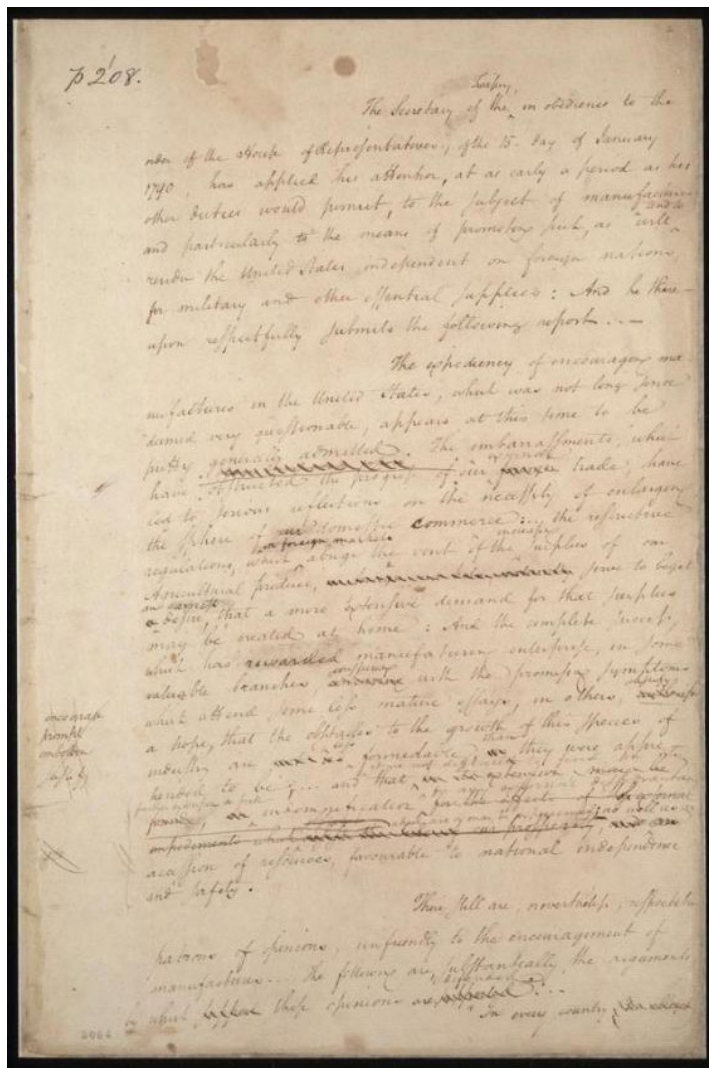 p 208.
Treasury,
The Secretary of the in obedience to the
order of the House of Representatives, of the 15. day of January
1790, has applied his attention, at as early a period as his
other duties would permit, to the subject of manufactures
and particularly to the means of promoting such, as will
render the United States, independent on foreign nations,
for military and other essential supplies: And he there-
upon respectfully submits the following report...—
The expediency of encouraging ma
nufactures in the United States, which was not long since
deemed very questionable, appears at this time to be
pretty generally admitted. The embarrassments, which
have obstructed the progress of our trade, have
led to serious reflections on the necessity of enlarging
the sphere of our domestic commerce: the restrictive
regulations, which
in foreign markets
abrige the vent of the
increasing
surplus of our
Agricultural produce, serve to beget
an earnest
desire, that a more extensive demand for that surplus
may be created at home: And the complete success,
which has rewarded manufacturing enterprise, in some
valuable branches
conspiring
with the promising symptoms
which attend some less mature essays, in others,
justify
a hope, that the obstacles to the growth of this species of
industry are
less
formidable
than
they were appre
hended to be;... and that
accession of resources, favourable to national independence
and safety.
encourage
prompt
embolden
justify
There still are, nevertheless, respectable
patrons of opinions, unfriendly to the encouragement of
manufactures... The following are, substantially, the arguments
by which these opinions are
defended
:...
"In every country,